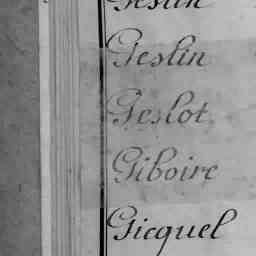 Geslin
Geslin
Geslot
Giboire
Gicquel